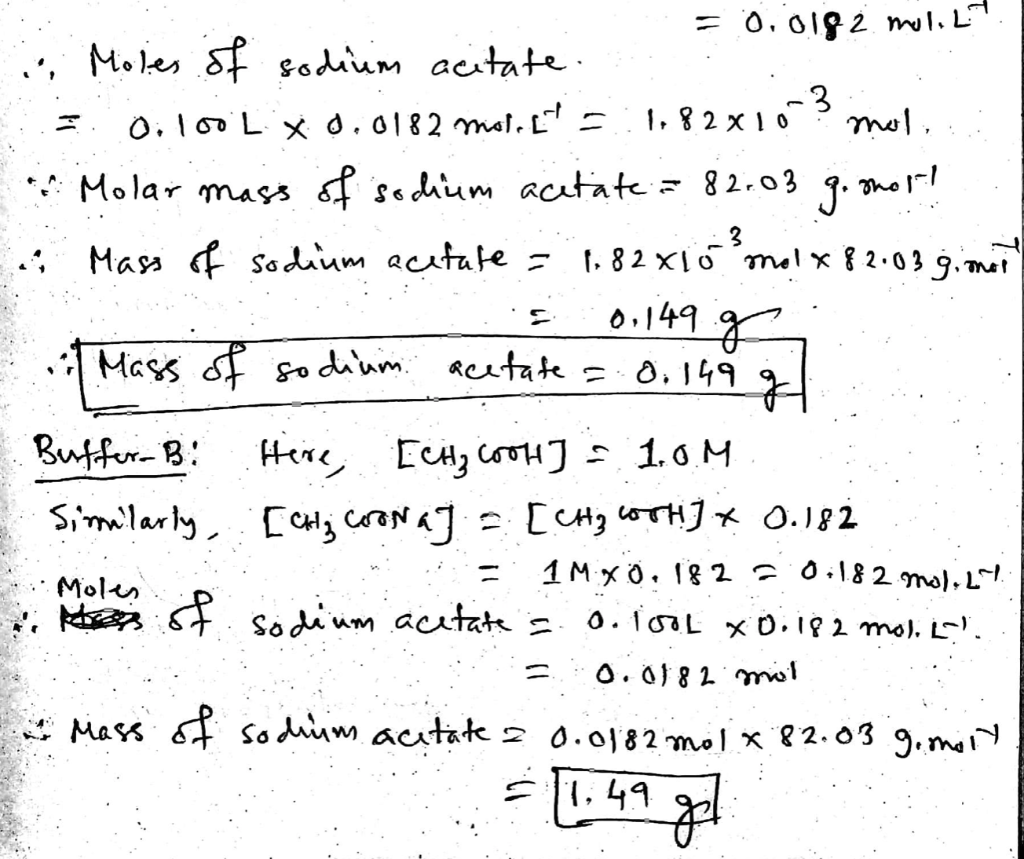 = 0.0182 mol.L⁻¹
∴ Moles of sodium acetate.
= 0.100 L × 0.0182 mol.L⁻¹ = 1.82×10⁻³ mol.
∵ Molar mass of sodium acetate = 82.03 g.mol⁻¹
∴ Mass of sodium acetate = 1.82×10⁻³ mol × 82.03 g.mol⁻¹
= 0.149 g
∴ Mass of sodium acetate = 0.149 g
Buffer-B: Here, [CH₃COOH] = 1.0 M
Similarly, [CH₃COONa] = [CH₃COOH] × 0.182
= 1M × 0.182 = 0.182 mol.L⁻¹
Moles
∴ of sodium acetate = 0.100L × 0.182 mol.L⁻¹.
= 0.0182 mol
∴ Mass of sodium acetate = 0.0182 mol × 82.03 g.mol⁻¹
= 1.49 g